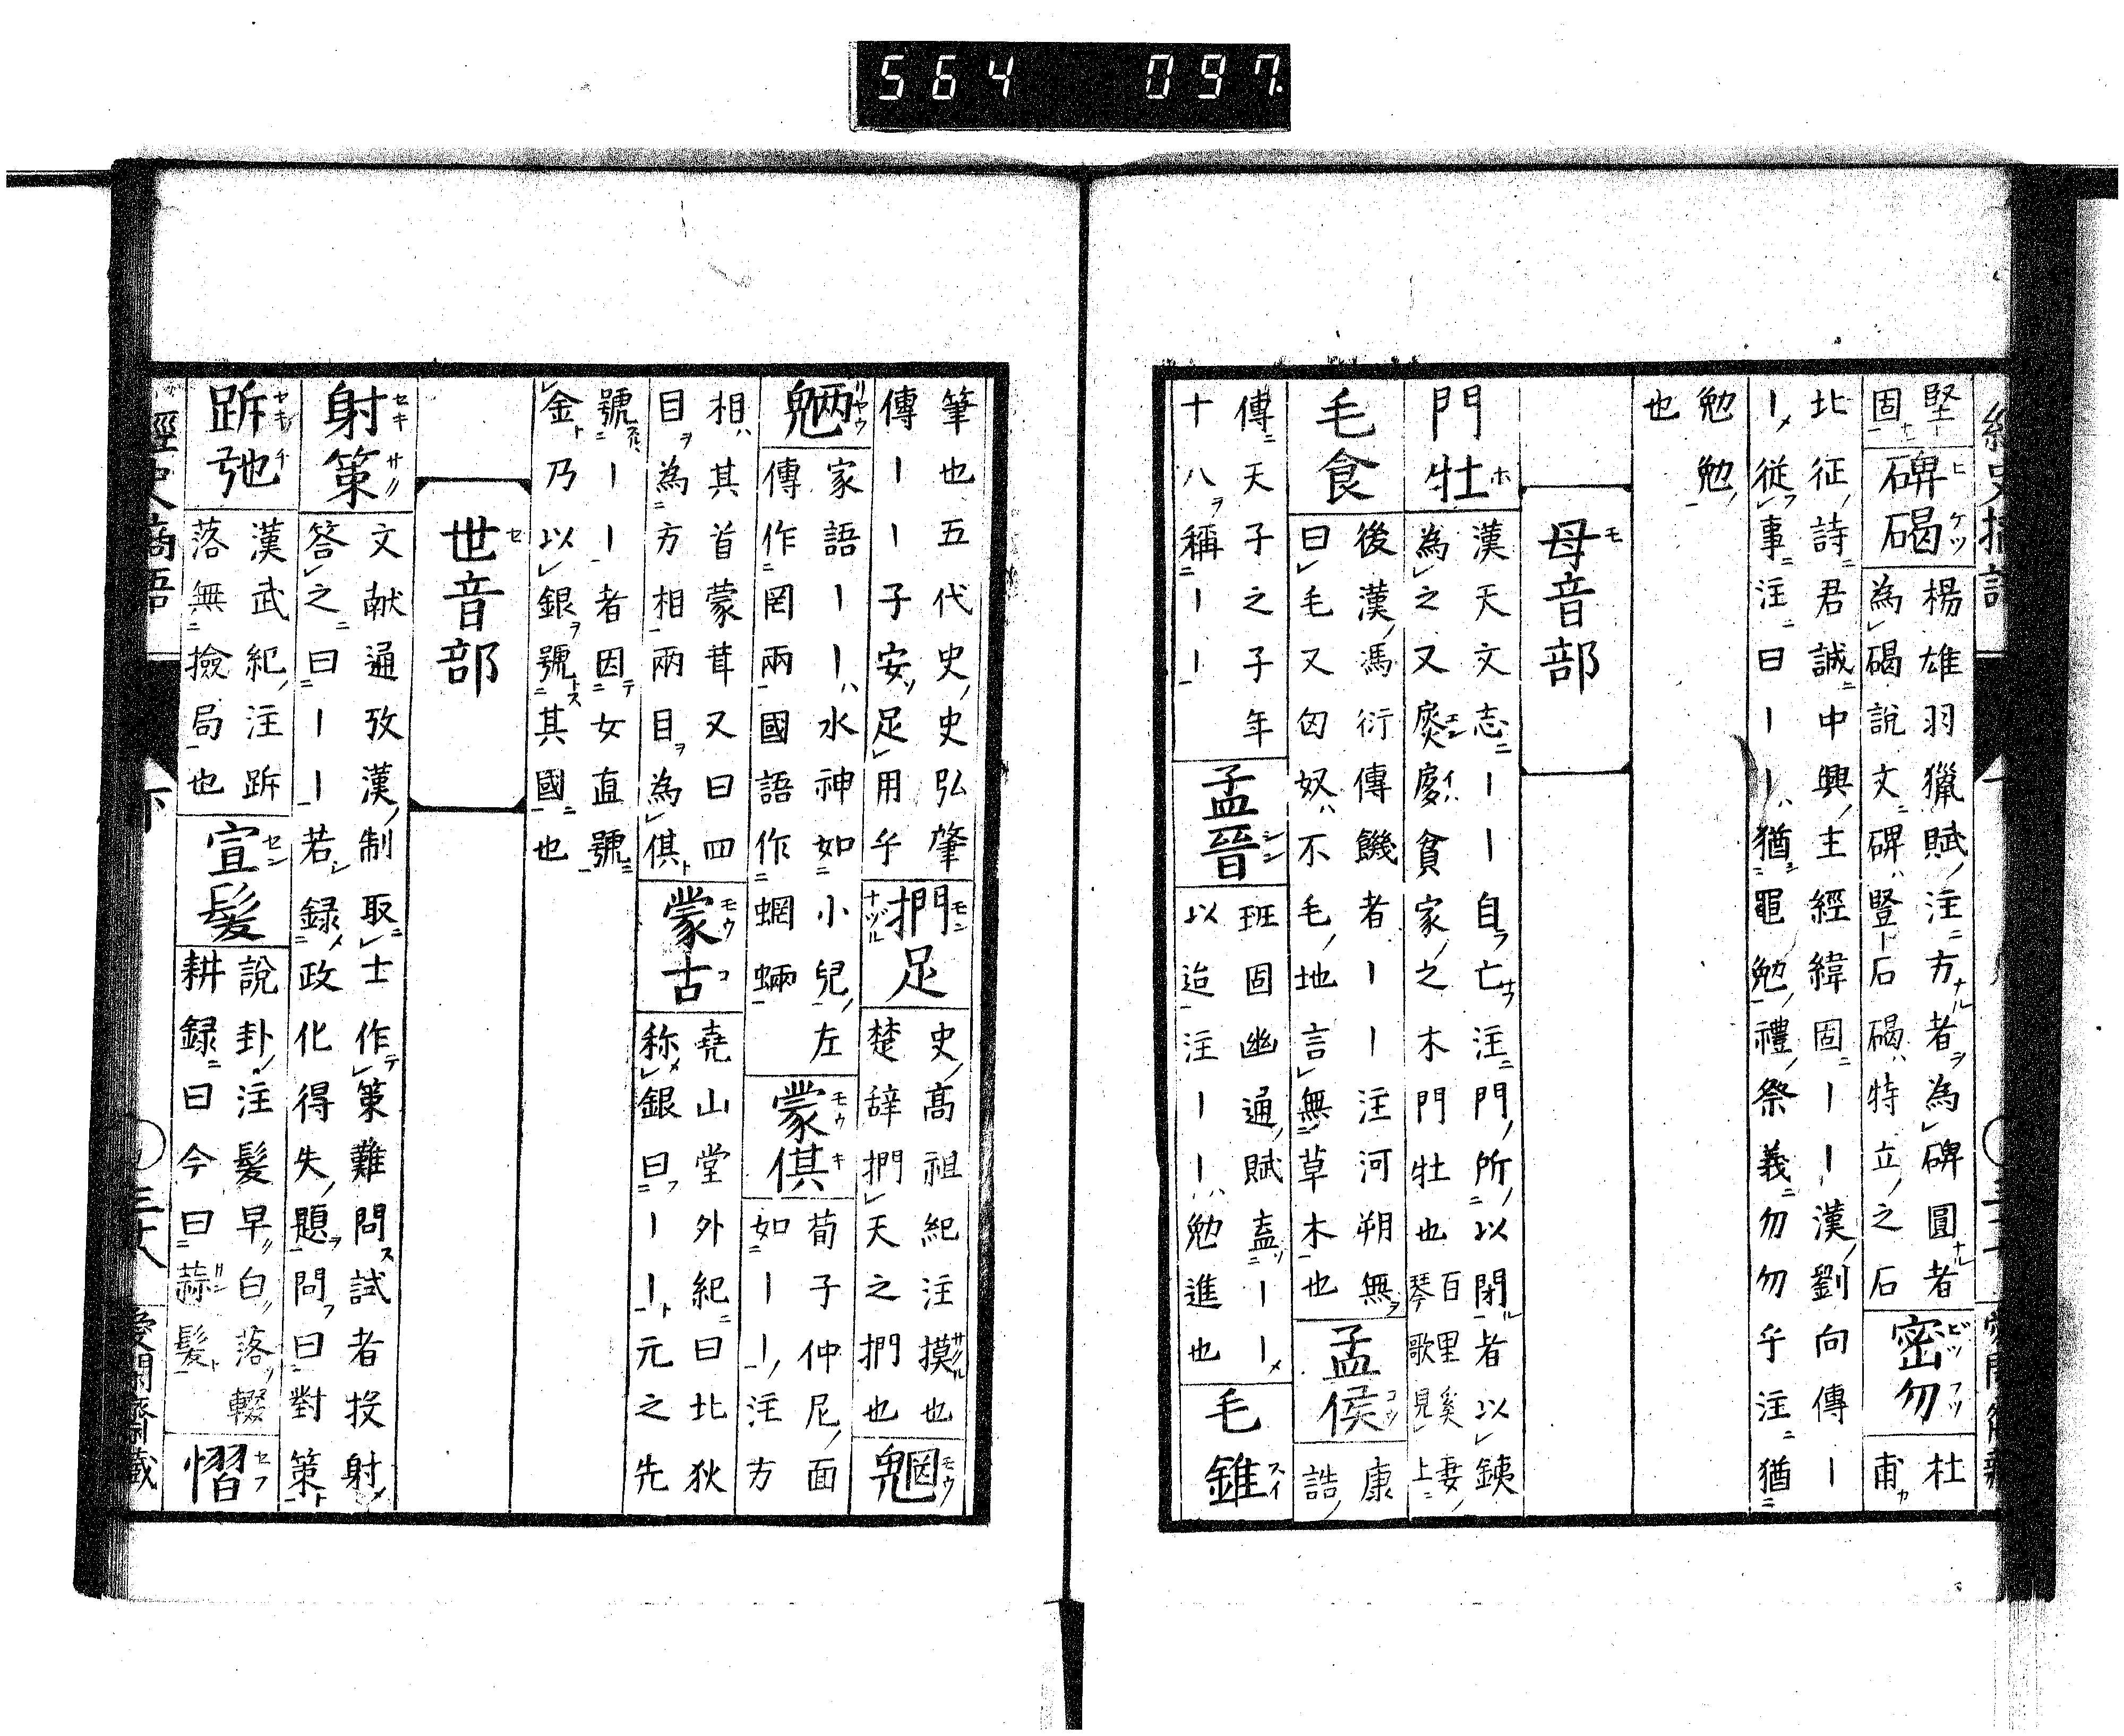 564 097
堅
固
碑碣
楊雄羽獵賦注方者為碑圓者
為碣說文碑豎石碣特立之石
密勿
杜
甫
北征詩君誠中興主經緯固ーー漢劉向傳ー
ー従事注曰ーー猶黽勉禮祭義勿勿乎注猶
勉勉
也
母音部
門牡
漢天文志ーー自亡注門所以閉者以鉄
為之又扊扅貧家之木門牡也百里奚妻
琴歌見上
毛食
後漢馮衍傳饑者ーー注河朔無
曰毛又匈奴不毛地言無草木也
孟侯
康
誥
傳天子之子年
十八稱ーー
孟晉
班固幽通賦盍ーー
以迨注ーー勉進也
毛錐
筆也五代史史弘肇
傳ーー子安足用乎
捫足
史高祖紀注摸也
楚辞捫天之捫也
魍
魎
家語ーー水神如小兒左
傳作罔兩國語作蝄蜽
蒙倛
荀子仲尼面
如ーー注方
相其首蒙茸又曰四
目為方相兩目為倛
蒙古
堯山堂外紀曰北狄
称銀曰ーー元之先
號ーー者因女直號
金乃以銀號其國也
世音部
射策
文献通攷漢制取士作策難問試者投射
答之曰ーー若録政化得失題問曰對策
跅弛
漢武紀注跅
落無撿局也
宣髮
說卦注髮早白落輟
耕録曰今曰蒜髮
慴
經史摘語
下
三十八
愛閑齋藏